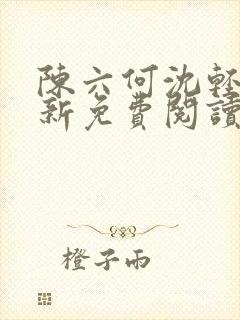 陳六何沈輕
新免費閱讀
橙子雨